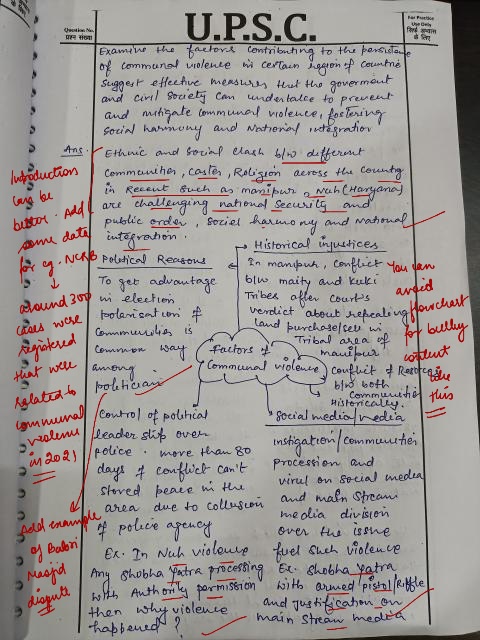 Question No.
प्रश्न संख्या
U.P.S.C.
For Practice
Use Only
सिर्फ़ अभ्यास
के लिए
Examine the factors contributing to the persistence
of communal violence in certain region of countrie
suggest effective measures that the goverment
and civil society can undertake to prevent
and mitigate communal violence, fostering
social harmony and National integration
Ans.
Ethnic and social clash b/w different
Communities, Castes, Religion across the Country
in Recent such as manipur, Nuh (Haryana)
are challenging national security and
public order, social harmony and National
integration.
Introduction
can be
better. Add
some data
for eg. NCRB
around 300
cases were
registered
that were
related to
communal
violence
in 2021
Add example
of Babri
Masjid
dispute
Political Reasons
To get advantage
in election
polarisation of
Communities is
common way
among
politician
Control of political
leader ship over
police. more than 80
days of conflict can't
stored peace in the
area due to collusion
of police agency
Ex. In Nuh violence
Any Shobha Yatra processing
with Authority permission
then why violence
happened ?
Factors of
Communal violence
Historical injustices
In manipur, Conflict
b/w maity and kuki
Tribes after court's
verdict about repealing
land purchase/sell in
Tribal area of
manipur
Conflict of
b/w both
Communities
Historically.
Social media/media
instigation/communities
procession and
virul on social media
and main stream
media division
over the issue
fuel such violence
Ex. Shobha Yatra
with armed/pistol/Riffle
and justification on
main stream media
You can
avoid
flowchart
for bulky
content
like
this